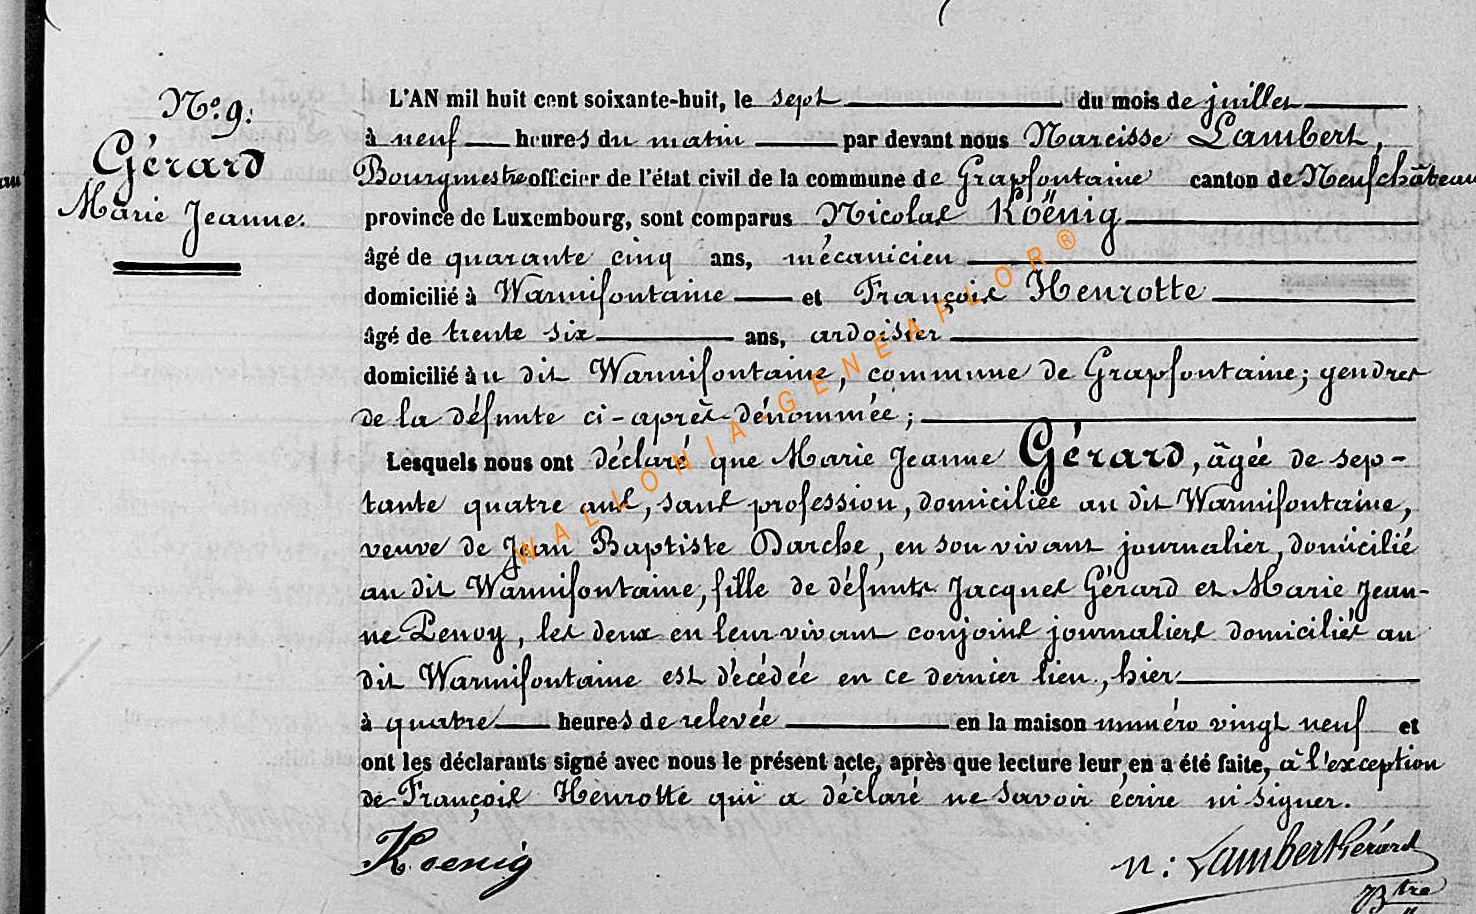 N° 9.
Gérard
Marie Jeanne.
L'AN mil huit cent soixante-huit, le sept du mois de juillet
à neuf heures du matin par devant nous Narcisse Lambert,
Bourgmestre officier de l'état civil de la commune de Grapfontaine canton de Neufchâteau
province de Luxembourg, sont comparus Nicolas Köënig
âgé de quarante cinq ans, mécanicien
domicilié à Warmifontaine et François Henrotte
âgé de trente six ans, ardoisier
domicilié àu dit Warmifontaine, commune de Grapfontaine; gendres
de la défunte ci-après dénommée;
Lesquels nous ont déclaré que Marie Jeanne Gérard, âgée de sep-
tante quatre ans, sans profession, domiciliée au dit Warmifontaine,
veuve de Jean Baptiste Darche, en son vivant journalier, domicilié
au dit Warmifontaine, fille de défunts Jacques Gérard et Marie Jean-
ne Penoy, les deux en leur vivant conjoins journaliers domiciliés au
dit Warmifontaine est décédée en ce dernier lieu, hier
à quatre heures de relevée en la maison numéro vingt neuf et
ont les déclarants signé avec nous le présent acte, après que lecture leur en a été faite, à l'exception
de François Henrotte qui a déclaré ne savoir écrire ni signer.
Koenig
N: Lambert Gérard
Btre
WALLONIA-GENEAFLOR®